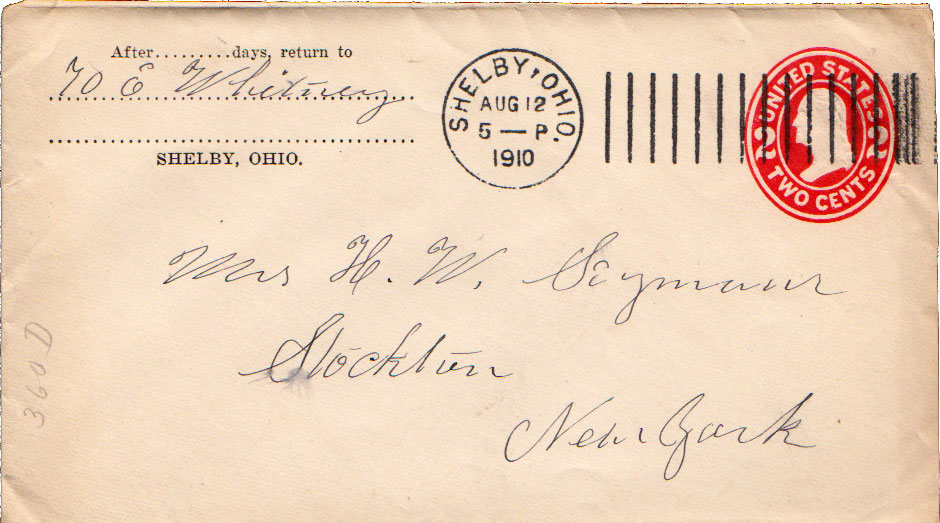 After.........days, return to
W E Whitney
SHELBY, OHIO.
SHELBY, OHIO.
AUG 12
5 — P.
1910
UNITED STATES
2 2
TWO CENTS
Mrs H. W. Seymour
Stockton
New York
360D